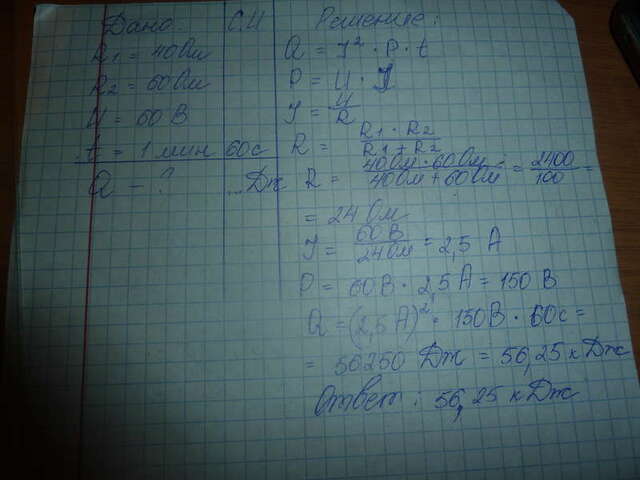 Дано:
R1 = 40 Ом
R2 = 60 Ом
U = 60 В
t = 1 мин
Q - ?
С.И
60с
...Дж
Решение:
Q = J² · P · t
P = U · J
J = U/R
R = R1 · R2 / R1 + R2
R = 40 Ом · 60 Ом / 40 Ом + 60 Ом = 2400/100 =
= 24 Ом
J = 60 В / 24 Ом = 2,5 А
P = 60 В · 2,5 А = 150 В
Q = (2,5 А)² · 150 В · 60с =
= 56250 Дж = 56,25 кДж
Ответ: 56,25 кДж